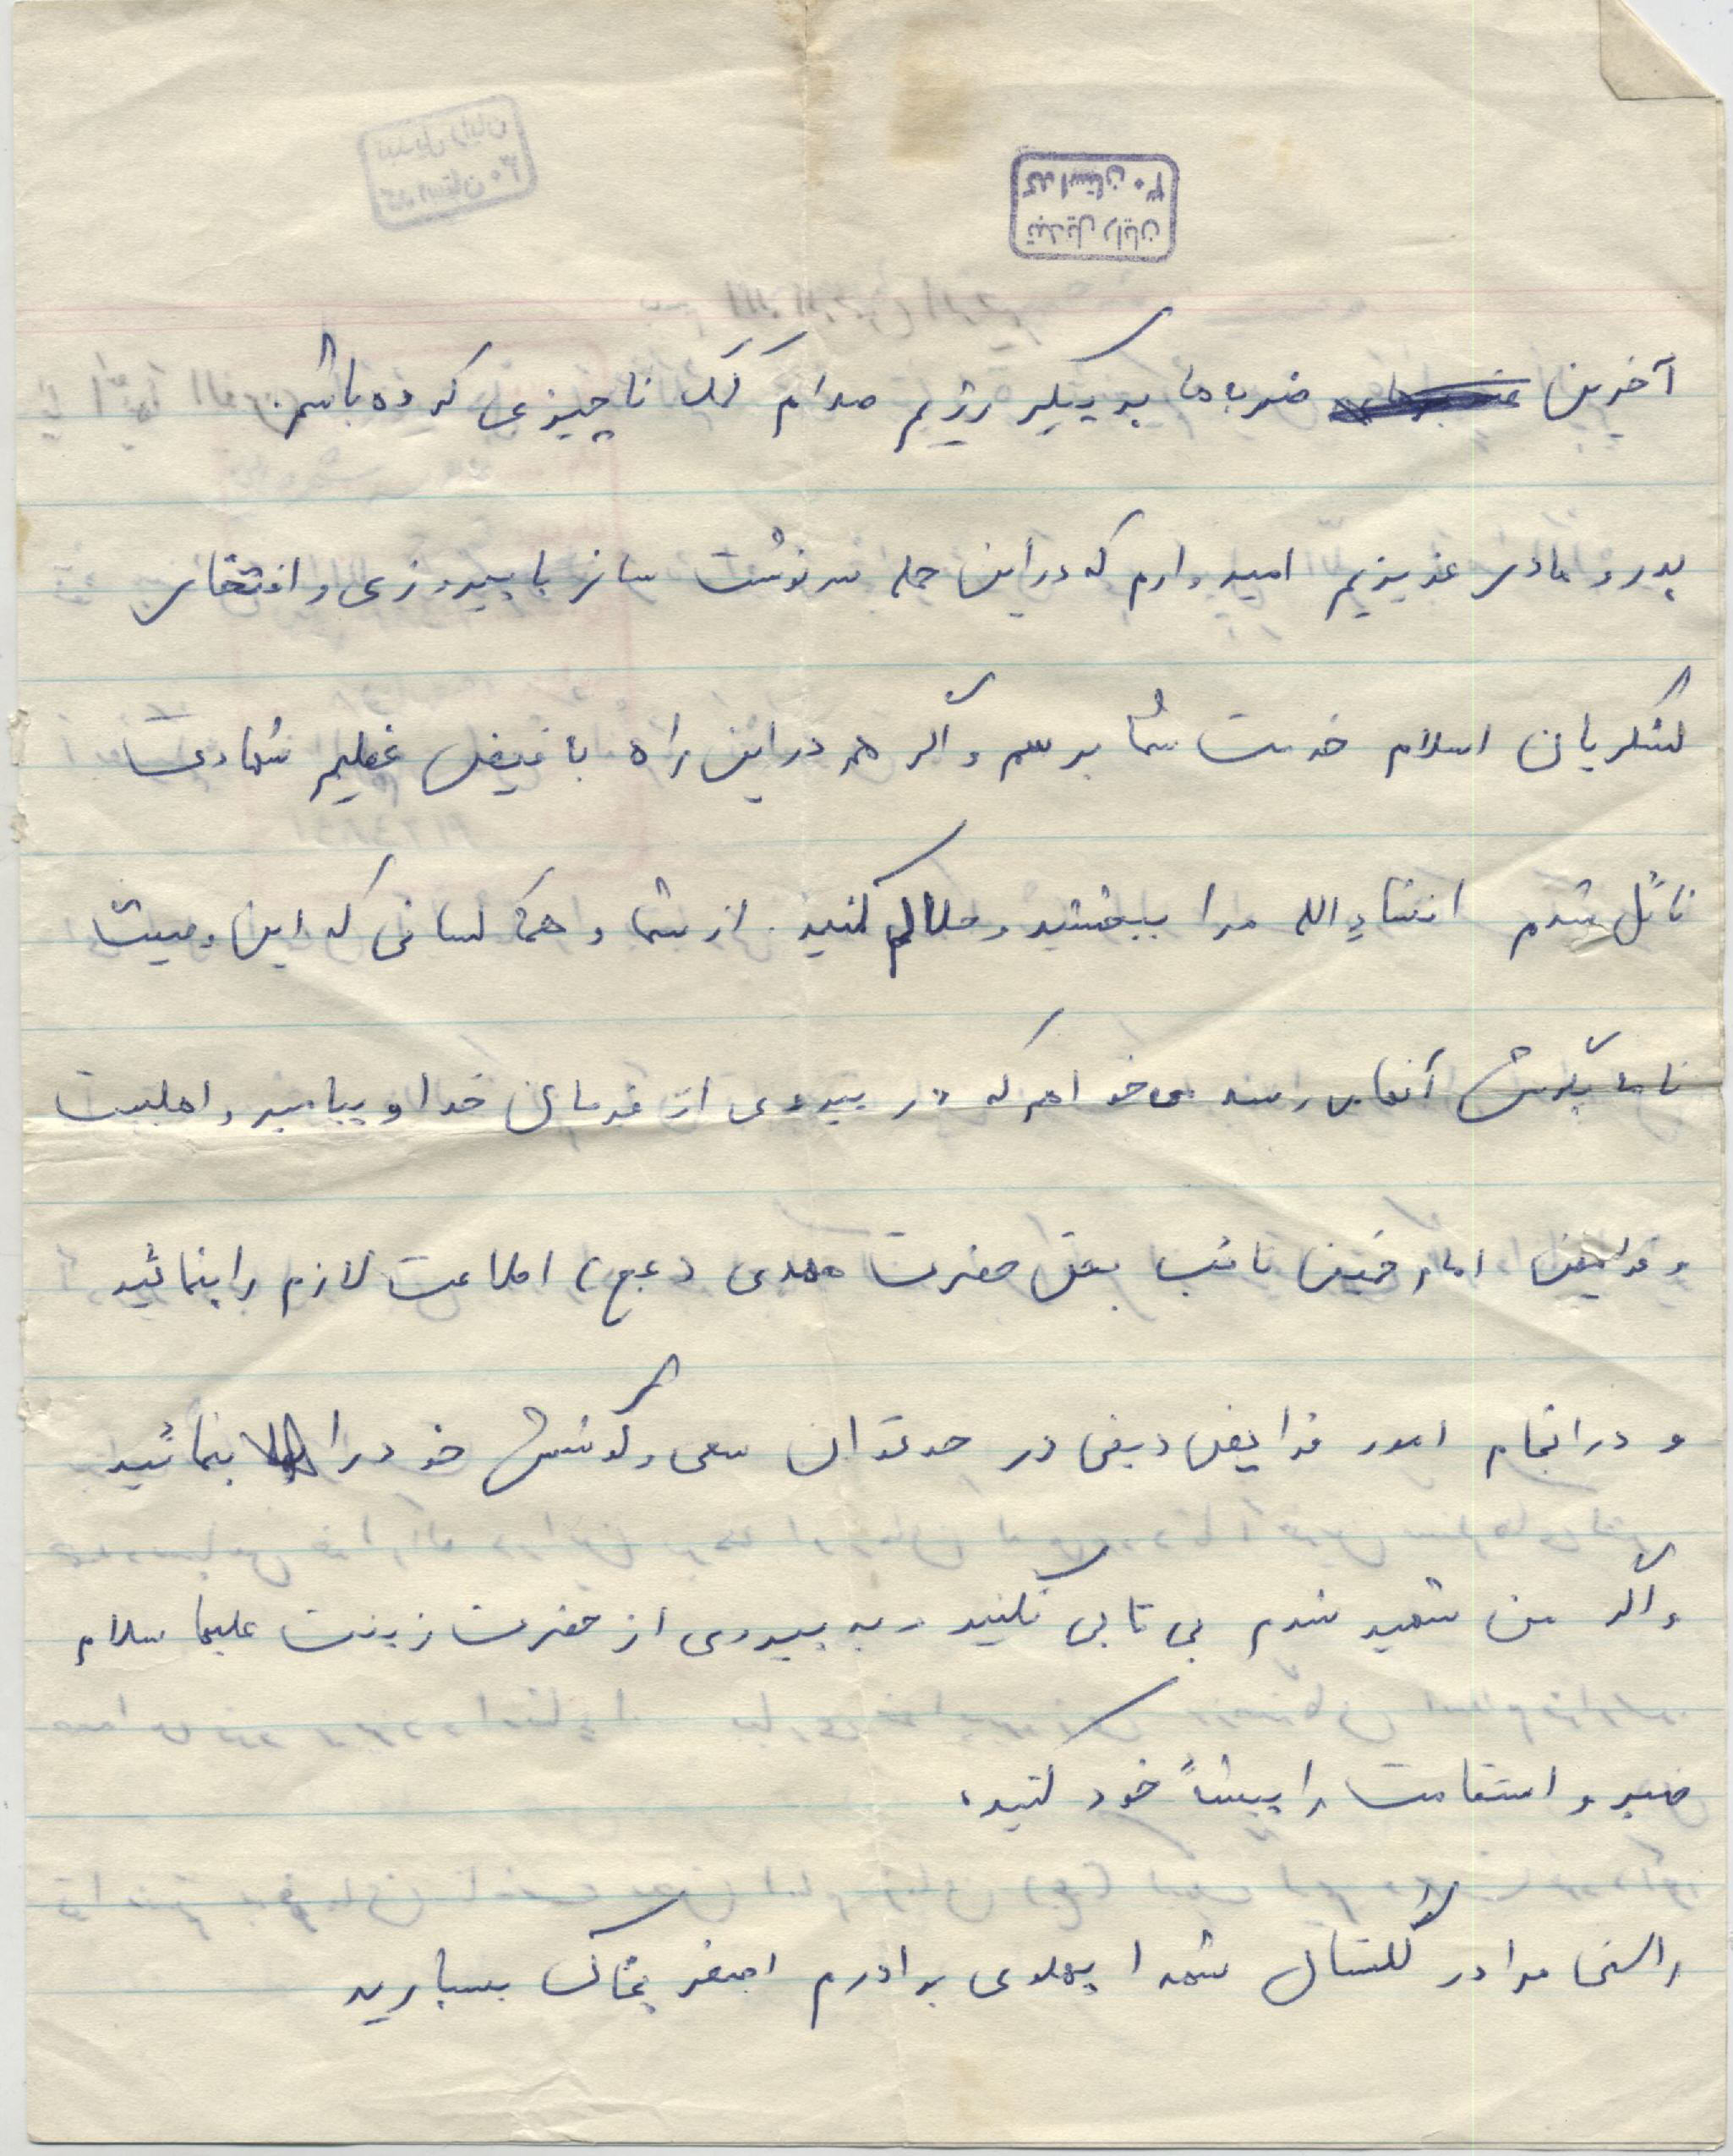 تبدیل رایان
کد استان ۳۰
آخرین ضربه‌ها به پیکر رژیم صدام کمک ناچیزی کرده باشم.
پدر و مادر عزیزم امیدوارم که در این حمله سرنوشت ساز با پیروزی و افتخار
لشکریان اسلام خدمت شما برسم و اگر هم در این راه با فیض عظیم شهادت
نائل شدم انشاءالله مرا ببخشید و حلالم کنید. از شما و همه کسانی که این وصیت
نامه بگوش آنها می‌رسد می‌خواهم که در پیروی از فرمان خدا و پیامبر و اهلبیت
و فرامین امام خمینی نائب بحق حضرت مهدی (عج) اطاعت لازم را بنمائید
و در انجام امور فرایض دینی در حد توان سعی و کوشش خود را بنمائید
و اگر من شهید شدم بی تابی نکنید و به پیروی از حضرت زینت علیها سلام
صبر و استقامت را پیشهٔ خود کنید.
راستی مرا در گلستان شهدا پهلوی برادرم اصغر بخاک بسپارید